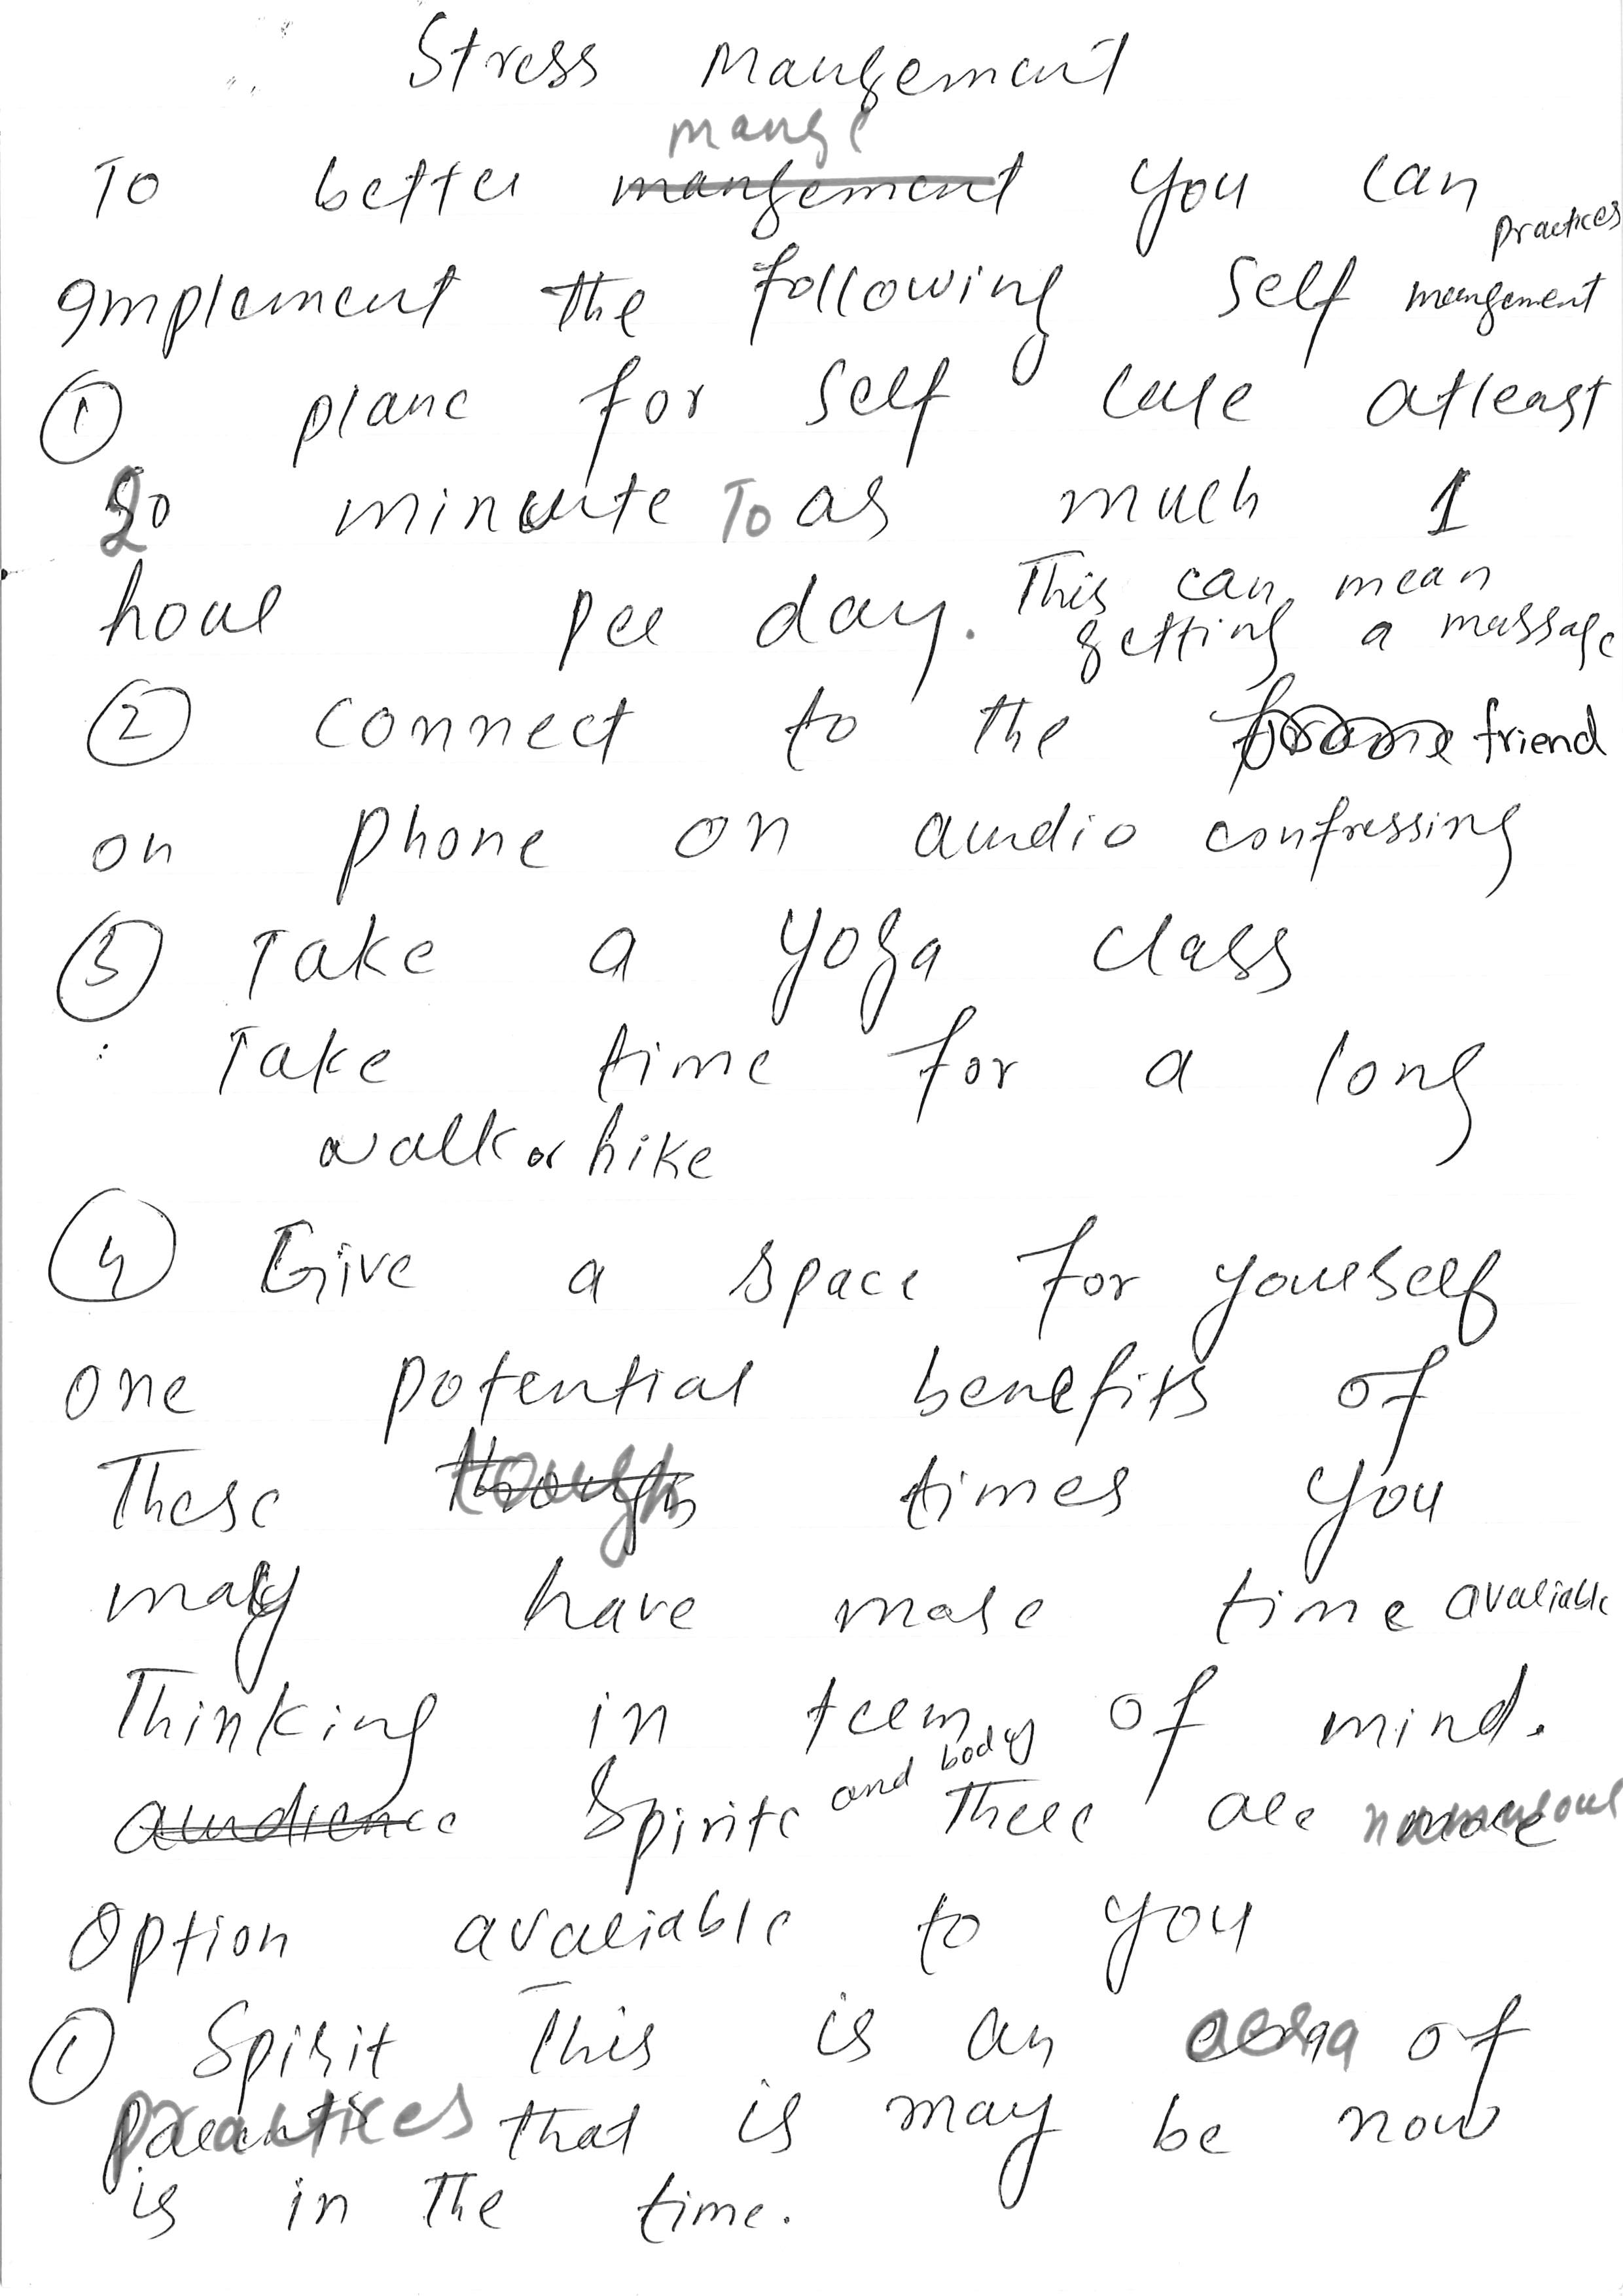 Stress Mangement
mange
To better mangement you can
practices
Implement the following Self mangement
① plane for self care atleast
20 minute To as much 1
hour per day. This can mean
getting a massage
② connect to the friend
on phone on audio confressing
③ Take a yoga class
Take time for a long
walk or hike
④ Give a space for yourself
one potential benefits of
These tough times you
may have more time avaliable
Thinking in term of mind.
and body
audience Spirite There are numerous
Option avaliable to you
① Spirit This is an area of
practices that is may be now
is in The time.